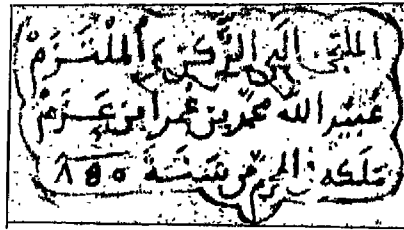 الملتجي الى الركن و الملتزم
عبيد الله محمد بن عمر ابن عزم
ملكه في المحرم من سنة